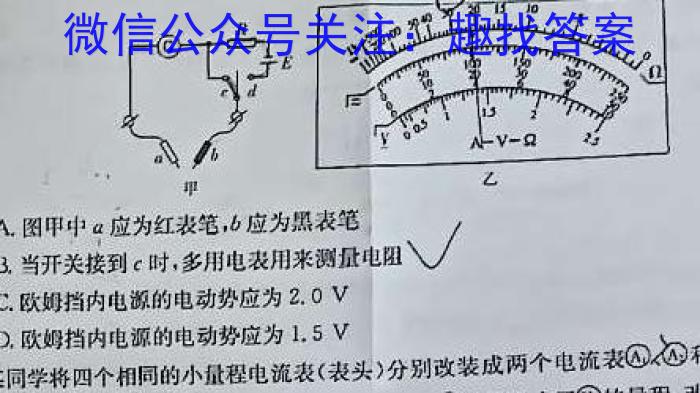 微信公众号关注：趣找答案
E
c d
a
b
甲
A-V-Ω
Ω
V
乙
A. 图甲中 a 应为红表笔,b 应为黑表笔
B. 当开关接到 c 时,多用电表用来测量电阻
C. 欧姆挡内电源的电动势应为 2.0 V
D. 欧姆挡内电源的电动势应为 1.5 V
同学将四个相同的小量程电流表(表头)分别改装成两个电流表